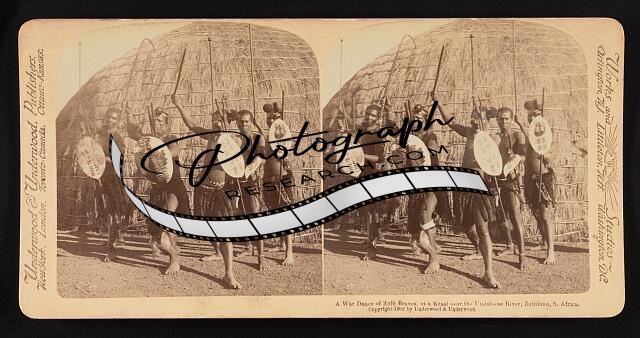 Underwood & Underwood, Publishers.
New York, London, Toronto-Canada, Ottawa-Kansas.
Works and Studios
Arlington, N.J. Littleton, N.H. Washington, D.C.
Photograph
RESEARCH.COM
A War Dance of Zulu Braves, at a Kraal near the River, Zululand, S. Africa.
Copyright 1902 by Underwood & Underwood.